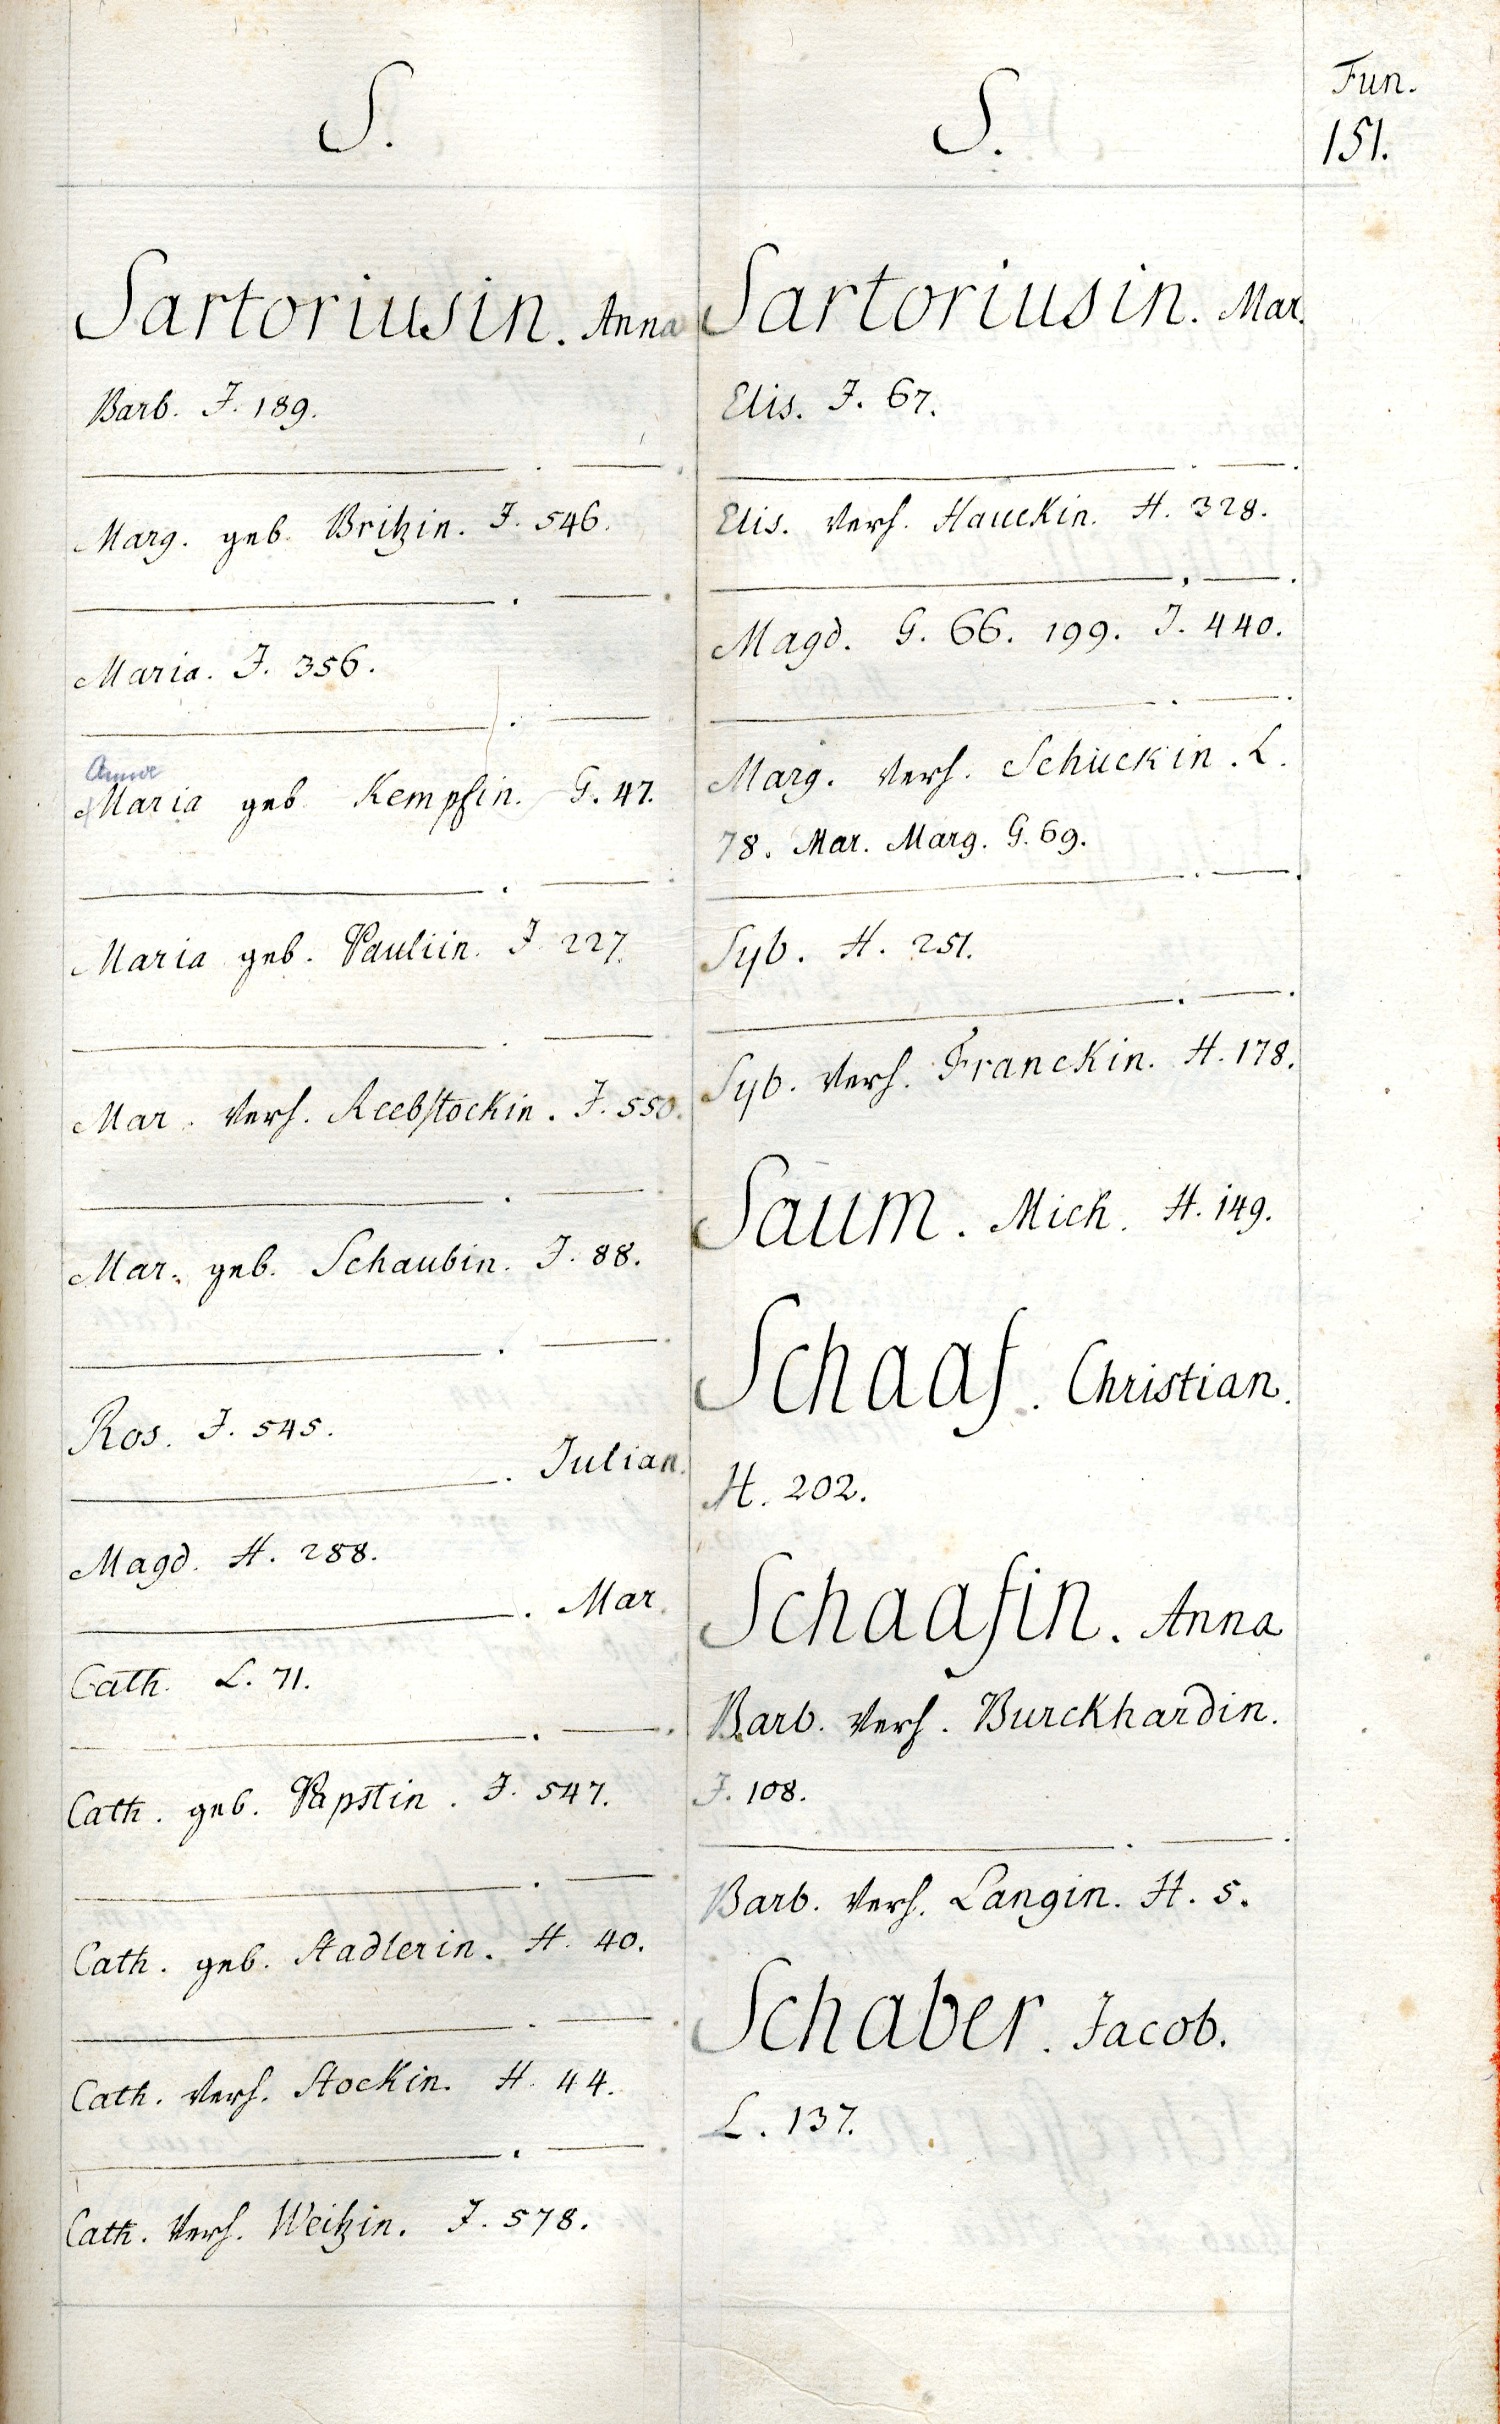 S.
Sartoriusin. Anna
Barb. J. 189.
———. ———.
Marg. geb. Britzin. J. 546.
———. ———.
Maria. J. 356.
———. ———
Anna
Maria geb. Kempfin. G. 47.
———. ———.
Maria geb. Pauliin. J. 227.
———. ———
Mar. verh. Reebstockin. J. 550.
———. ———
Mar. geb. Schaubin. J. 88.
———. ———.
Ros. J. 545.
———. Julian.
Magd. H. 288.
———. Mar.
Cath. L. 71.
———. ———.
Cath. geb. Papstin. J. 547.
———. ———.
Cath. geb. Stadlerin. H. 40.
———. ———.
Cath. verh. Stockin. H. 44.
———. ———.
Cath. verh. Weitzin. J. 578.
S.
Sartoriusin. Mar.
Elis. J. 67.
———. ———.
Elis. verh. Hauckin. H. 328.
———. ———.
Magd. G. 66. 199. J. 440.
———. ———.
Marg. verh. Schückin. L.
78. Mar. Marg. G. 69.
———. ———.
Syb. H. 251.
———. ———.
Syb. verh. Franckin. H. 178.
Saum. Mich. H. 149.
Schaaf. Christian.
H. 202.
Schaafin. Anna
Barb. verh. Burckhardin.
J. 108.
———. ———.
Barb. verh. Langin. H. 5.
Schaber. Jacob.
L. 137.
Fun.
151.